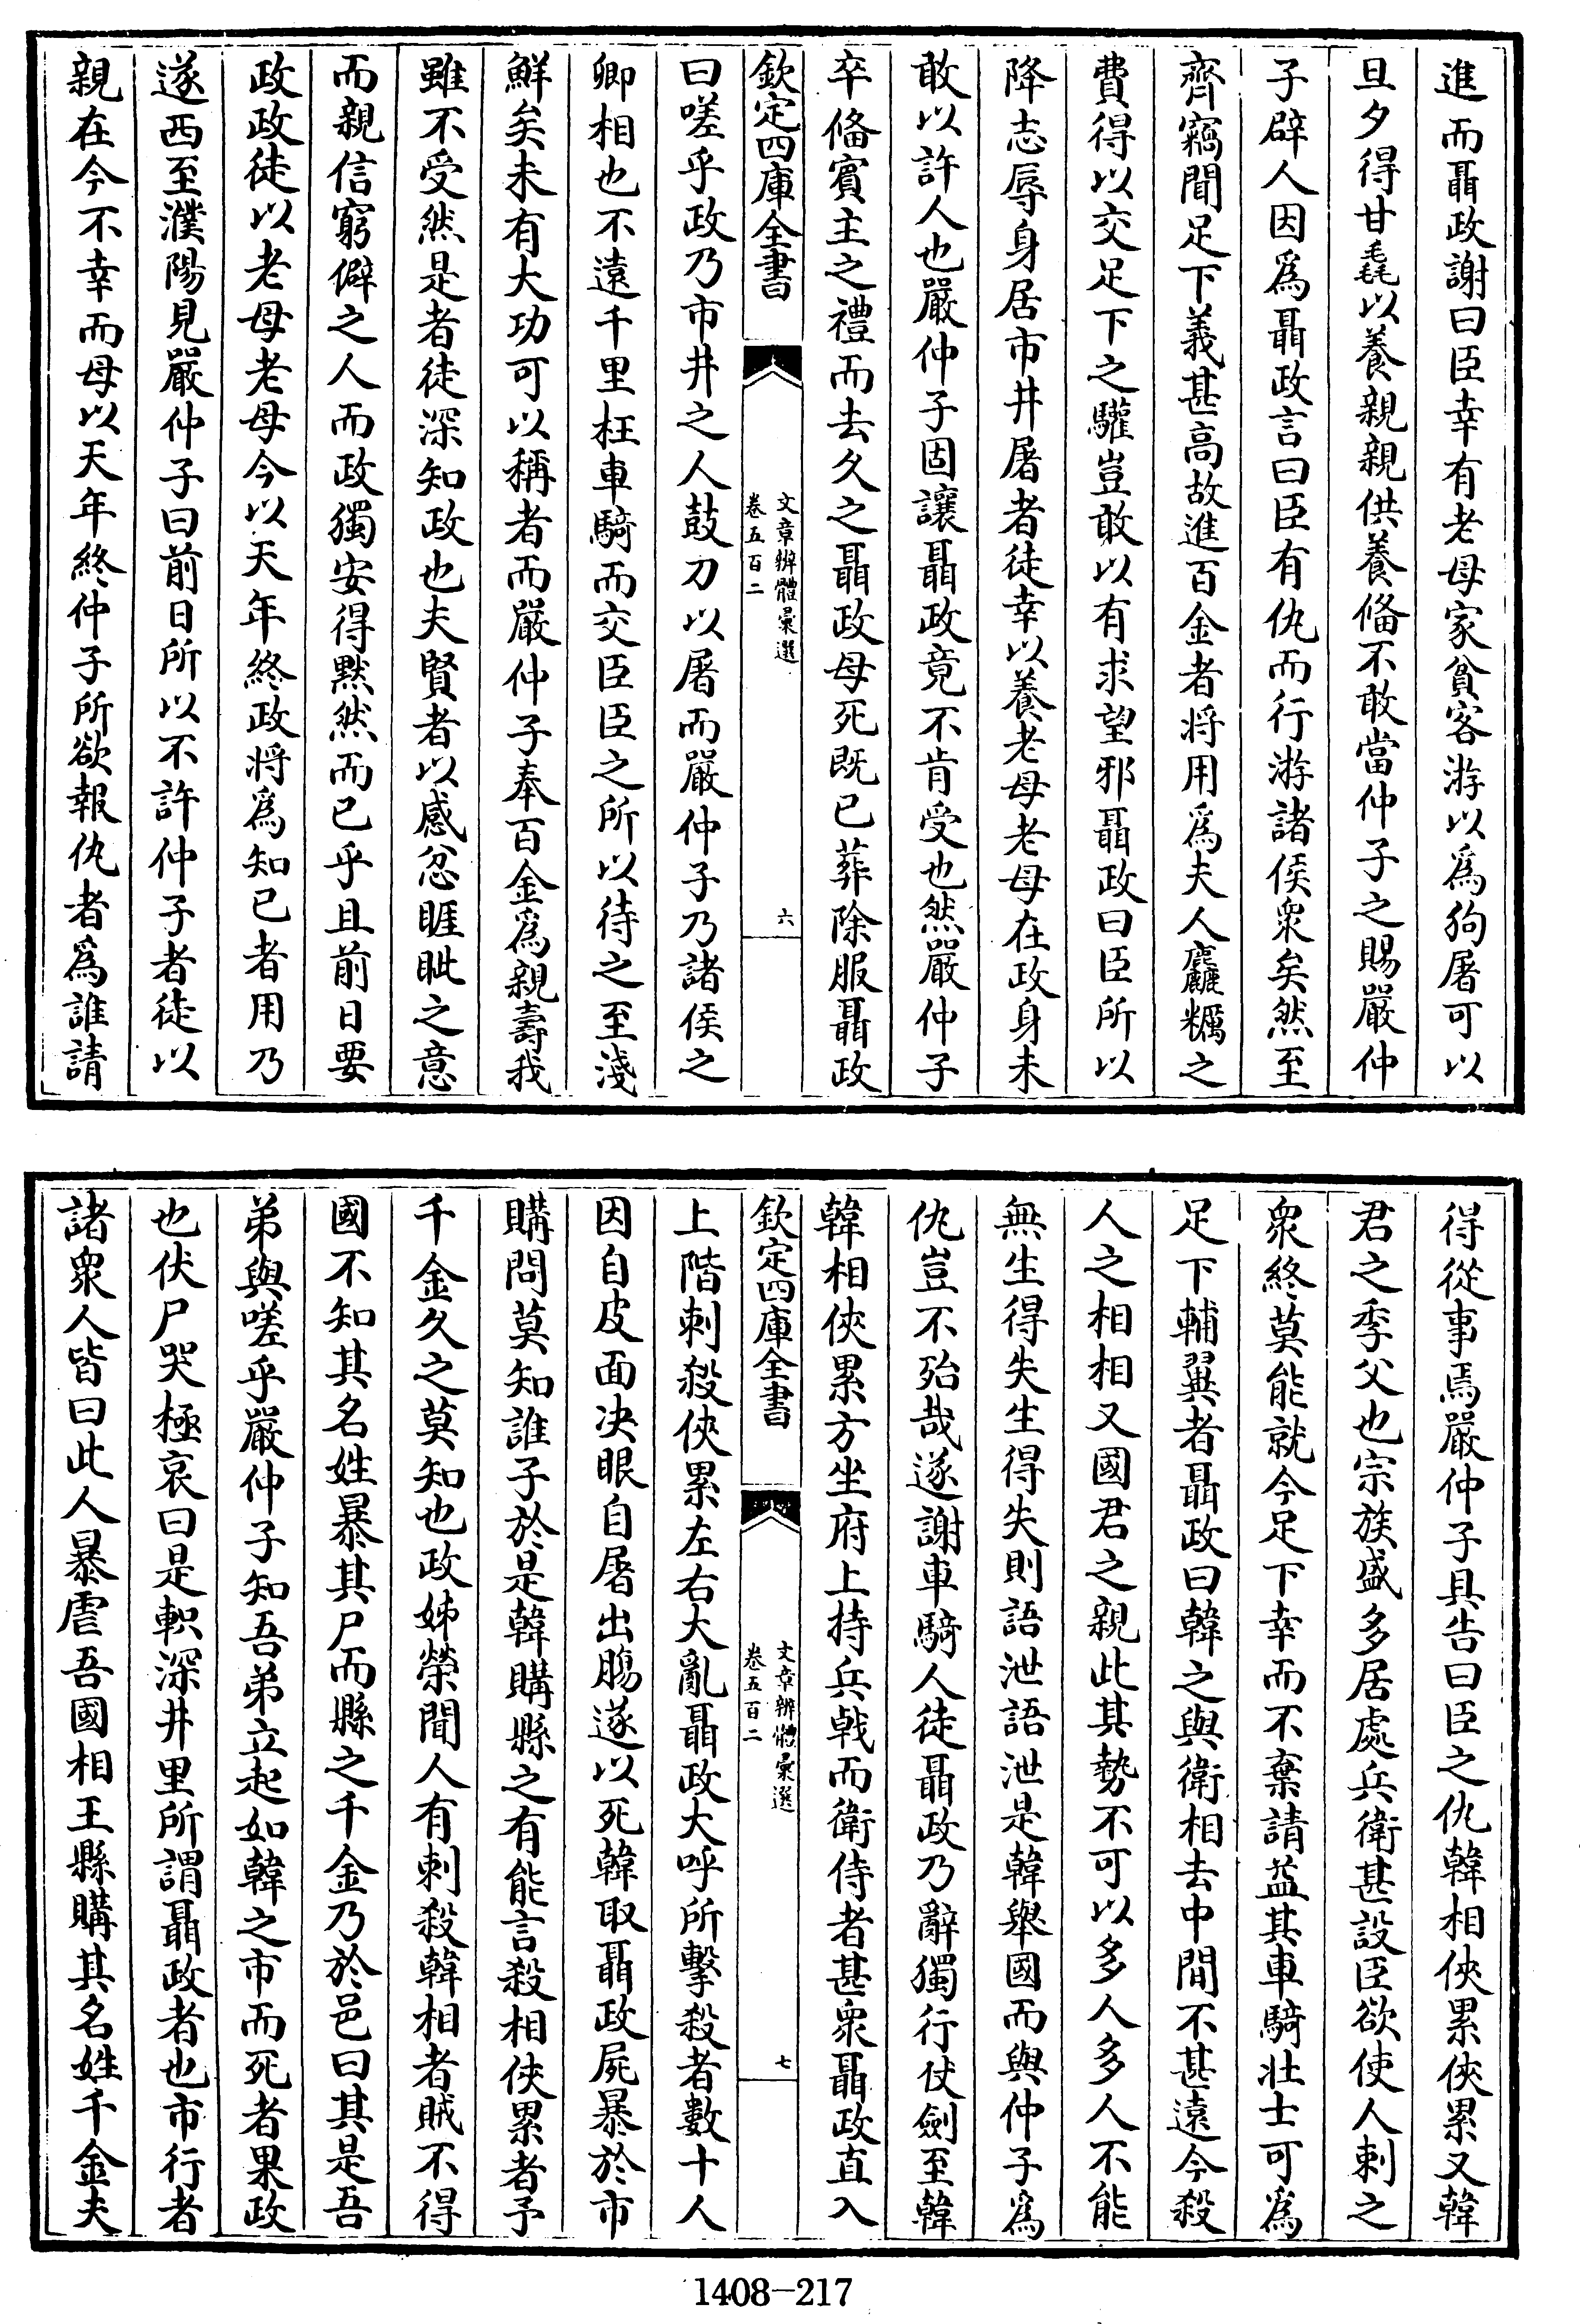 進而聶政謝曰臣幸有老母家貧客游以爲狗屠可以
旦夕得甘毳以養親親供養偹不敢當仲子之賜嚴仲
子辟人因爲聶政言曰臣有仇而行游諸侯衆矣然至
齊竊聞足下義甚高故進百金者将用爲夫人麤糲之
費得以交足下之驩豈敢以有求望邪聶政曰臣所以
降志辱身居市井屠者徒幸以養老母老母在政身未
敢以許人也嚴仲子固讓聶政竟不肯受也然嚴仲子
卒偹賓主之禮而去久之聶政母死既已葬除服聶政
欽定四庫全書
文章辨體彙選
卷五百二
六
曰嗟乎政乃市井之人鼓刀以屠而嚴仲子乃諸侯之
卿相也不遠千里枉車騎而交臣臣之所以待之至淺
鮮矣未有大功可以稱者而嚴仲子奉百金爲親壽我
雖不受然是者徒深知政也夫賢者以感忿睚眦之意
而親信窮僻之人而政獨安得黙然而已乎且前日要
政政徒以老母老母今以天年終政将爲知已者用乃
遂西至濮陽見嚴仲子曰前日所以不許仲子者徒以
親在今不幸而母以天年終仲子所欲報仇者爲誰請
得從事焉嚴仲子具告曰臣之仇韓相俠累俠累又韓
君之季父也宗族盛多居處兵衛甚設臣欲使人刺之
衆終莫能就今足下幸而不棄請益其車騎壮士可爲
足下輔翼者聶政曰韓之與衛相去中間不甚遠今殺
人之相相又國君之親此其勢不可以多人多人不能
無生得失生得失則語泄語泄是韓舉國而與仲子爲
仇豈不殆哉遂謝車騎人徒聶政乃辭獨行仗劍至韓
韓相俠累方坐府上持兵戟而衛侍者甚衆聶政直入
欽定四庫全書
文章辨體彙選
卷五百二
七
上階刺殺俠累左右大亂聶政大呼所擊殺者數十人
因自皮面决眼自屠出膓遂以死韓取聶政屍暴於市
購問莫知誰子於是韓購縣之有能言殺相俠累者予
千金久之莫知也政姊榮聞人有刺殺韓相者賊不得
國不知其名姓暴其尸而縣之千金乃於邑曰其是吾
弟與嗟乎嚴仲子知吾弟立起如韓之市而死者果政
也伏尸哭極哀曰是軹深井里所謂聶政者也市行者
諸衆人皆曰此人暴虐吾國相王縣購其名姓千金夫
1408-217